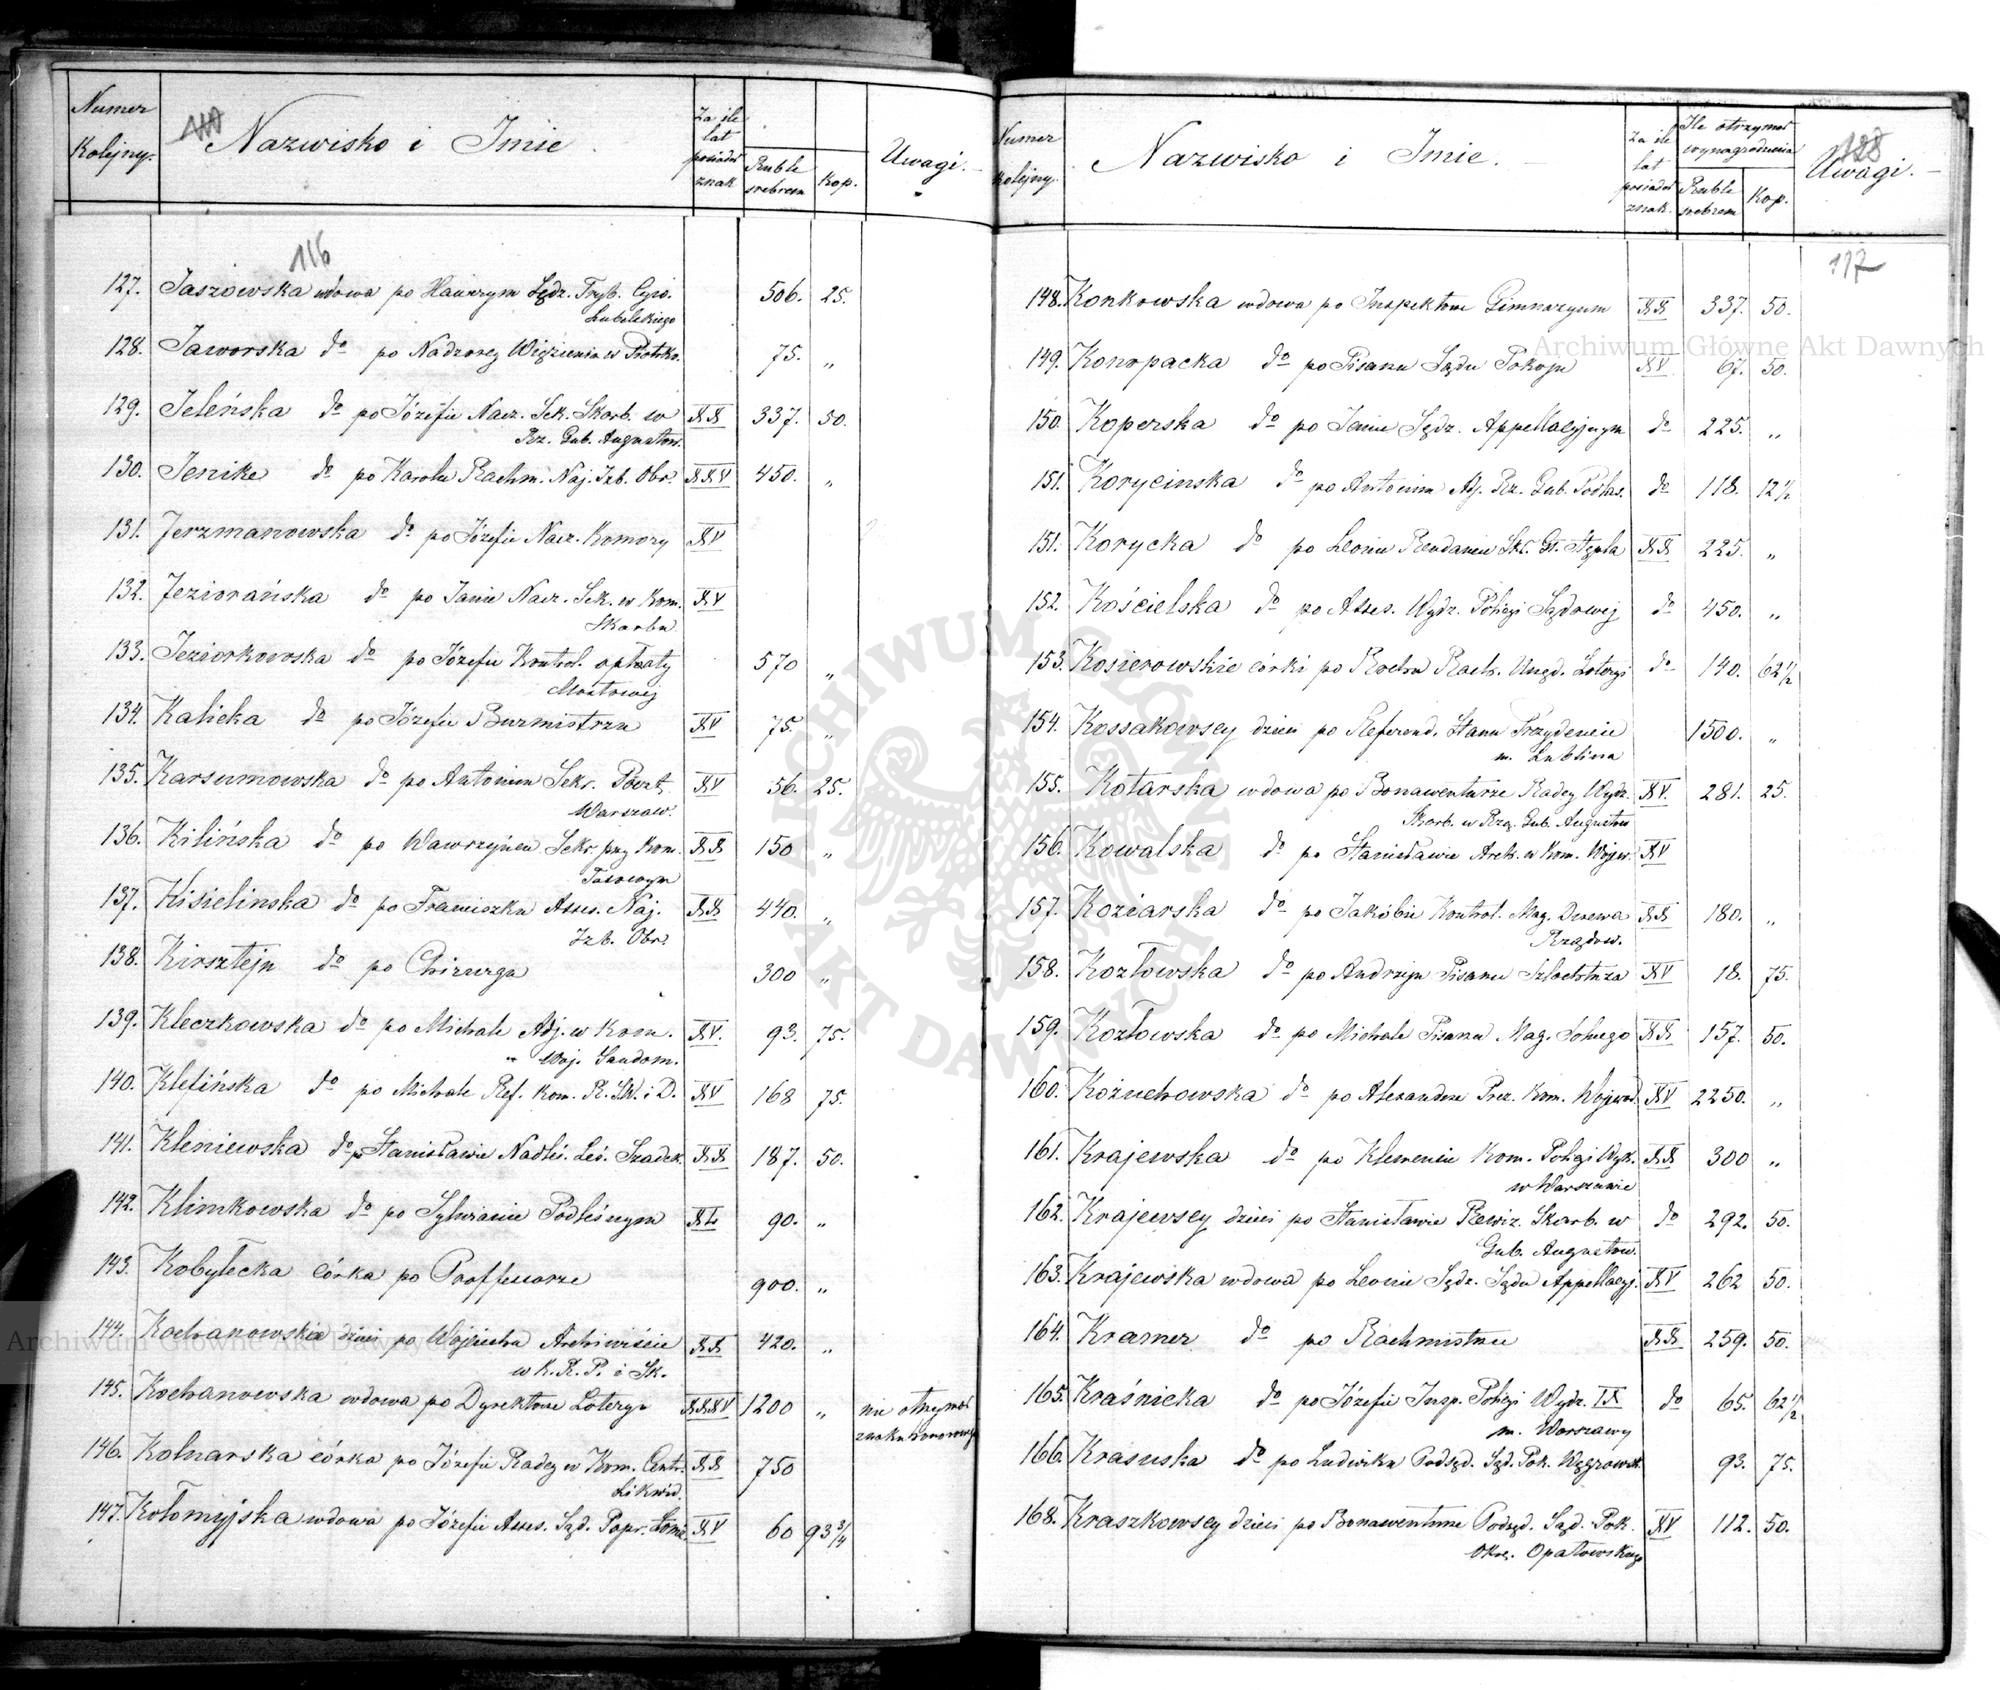 Numer Kolejny. Nazwisko i Imie. Za ile lat posiadał znak Ruble srebrem Kop. Uwagi.
116
127. Jaszowska wdowa po Sędz. Tryb. Cyw. 506. 25.
Lubelskiego
128. Jaworska do po Nadzorcy Więzienia w Piotrko. 75. „
129. Jeleńska do po Józefie Nacz. Sek. Skarb. w XX 337. 50.
Rz. Gub. Augustow.
130. Jenike do po Karolu Rachm. Naj. Izb. Obr. XXV 450. „
131. Jerzmanowska do po Józefie Nacz. Komory XV
132. Jeziorańska do po Janie Nacz. Sek. w Kom. XV
Skarbu
133. Jeziorkowska do po Józefie Kontrol. opłaty 570 „
Mostowej
134. Kalicka do po Józefie Burmistrzu XV 75. „
135. Karsumowska do po Antonim Sekr. Poczt. XV 56. 25.
Warszaw.
136. Kilińska do po Wawrzyńcu Sekr. przy Kom. XX 150 „
137. Kisielinska do po Franciszku Asses. Naj. XX 440. „
Izb. Obr.
138. Kirsztejn do po Chirurgu 300 „
139. Kleczkowska do po Michale Adj. w Kom. XV. 93. 75.
Woj. Sandom.
140. Klefińska do po Michale Ref. Kom. R. SW. i D. XV 168 75.
141. Kleniewska do po Stanisławie Nadleś. Leś. Szadek. XX 187. 50.
142. Klimkowska do po Sylwianie Podleśnym XL 90. „
143. Kobyłecka córka po Professorze 900. „
144. Kochanowskie dzieci po Wojciechu Archiwiście XX 420. „
w K. R. P. i Sk.
145. Kochanowska wdowa po Dyrektorze Loteryi XXXV 1200 „ nie otrzymał
znaku honorowego
146. Kolnarska córka po Józefie Radcy w Kom. Centr. XX 750
Likwid.
147. Kołomyjska wdowa po Józefie Asses. Sąd. Popr. Łomż. XV 60 93 3/4
Numer Kolejny. Nazwisko i Imie. Za ile lat posiadał znak. Ile otrzymał wynagrodzenia Ruble srebrem Kop. Uwagi.
117
148. Konkowska wdowa po Inspektorze Gimnazyum XX 337. 50.
149. Konopacka do po Pisarzu Sądu Pokoju XV 67. 50.
150. Koperska do po Janie Sędz. Appellacyjnym do 225. „
151. Korycinska do po Antonim Adj. Rz. Gub. Podlas. do 118. 12 1/2
151. Korycka do po Leonie Rendancie Skł. Gł. Stępla XX 225. „
152. Kościelska do po Asses. Wydz. Policyi Sądowej do 450. „
153. Kosierowskie córki po Rochu Rach. Urzęd. Loteryi do 140. 62 1/2
154. Kossakowscy dzieci po Referend. Stanu Prezydencie 1500. „
m. Lublina
155. Kotarska wdowa po Bonawenturze Radcy Wydz. XV. 281. 25.
Skarb. w Rzą. Gub. Augustow
156. Kowalska do po Stanisławie Arch. w Kom. Wojew. XV
157. Koziarska do po Jakóbie Kontrol. Mag. Drzewa XX 180. „
Rządow.
158. Kozłowska do po Andrzeju Pisarzu Szlachtuza XV 18. 75.
159. Kozłowska do po Michale Pisarzu Mag. Solnego XX 157. 50.
160. Kożuchowska do po Alexandrze Prez. Kom. Wojewod. XV 2250. „
161. Krajewska do po Klemensie Kom. Policyi Wyk. XX 300 „
w Warszawie
162. Krajewscy dzieci po Stanisławie Rewiz. Skarb. w do 292. 50.
Gub. Augustow.
163. Krajewska wdowa po Leonie Sędz. Sądu Appellacyj. XV 262 50.
164. Kramer do po Rachmistrzu XX 259. 50.
165. Kraśnicka do po Józefie Insp. Policyi Wydz. IX do 65. 62 1/2
m. Warszawy
166. Krasuska do po Ludwiku Podsęd. Sąd. Pok. Węgrowsk. 93. 75.
168. Kraszkowscy dzieci po Bonawenturze Podsęd. Sąd. Pok. XV 112. 50.
Okrę. Opatowskiego
Archiwum Główne Akt Dawnych
Archiwum Główne Akt Dawnych
ARCHIWUM GŁÓWNE AKT DAWNYCH